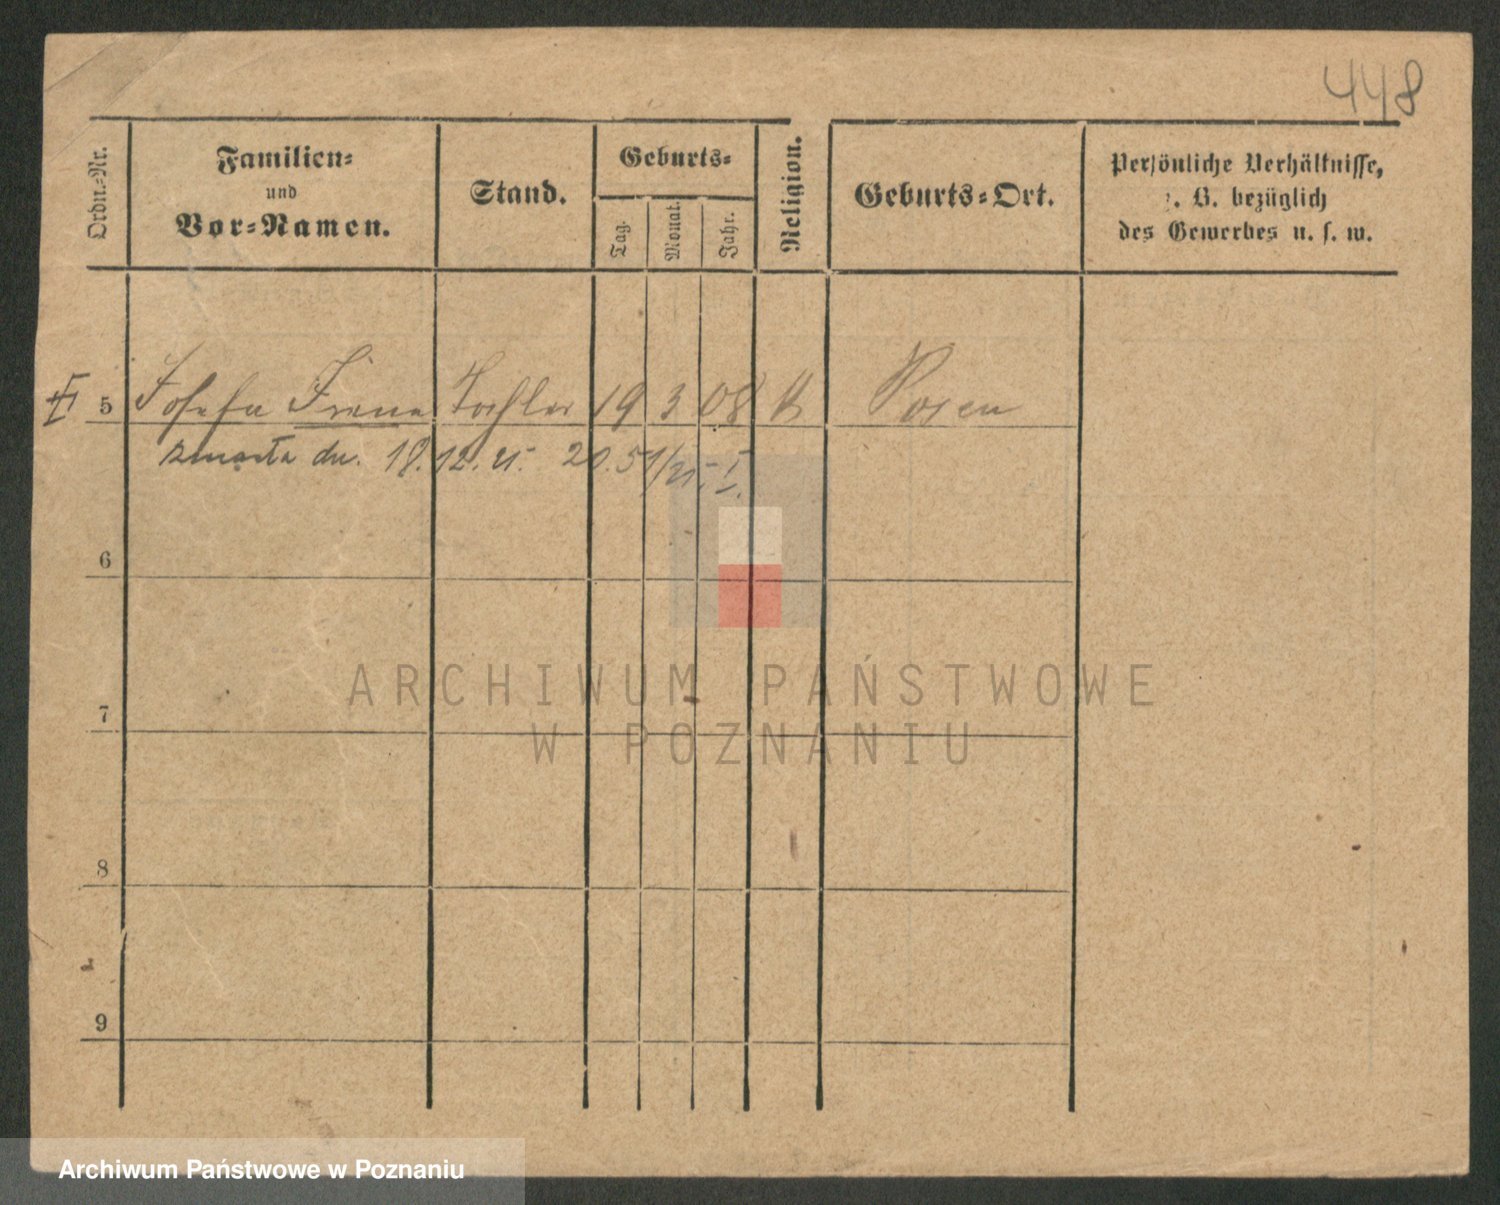 448
Ordn.-Nr.
Familien-
und
Vor-Namen.
Stand.
Geburts-
Tag.
Monat.
Jahr.
Religion.
Geburts-Ort.
Persönliche Verhältnisse,
z. B. bezüglich
des Gewerbes u. s. w.
5 Josefa Irene Tochter 19 3 08 k Posen
zmarła dn. 18.12.21. 20.51/21. I.
6
7
8
9
ARCHIWUM PAŃSTWOWE
W POZNANIU
Archiwum Państwowe w Poznaniu